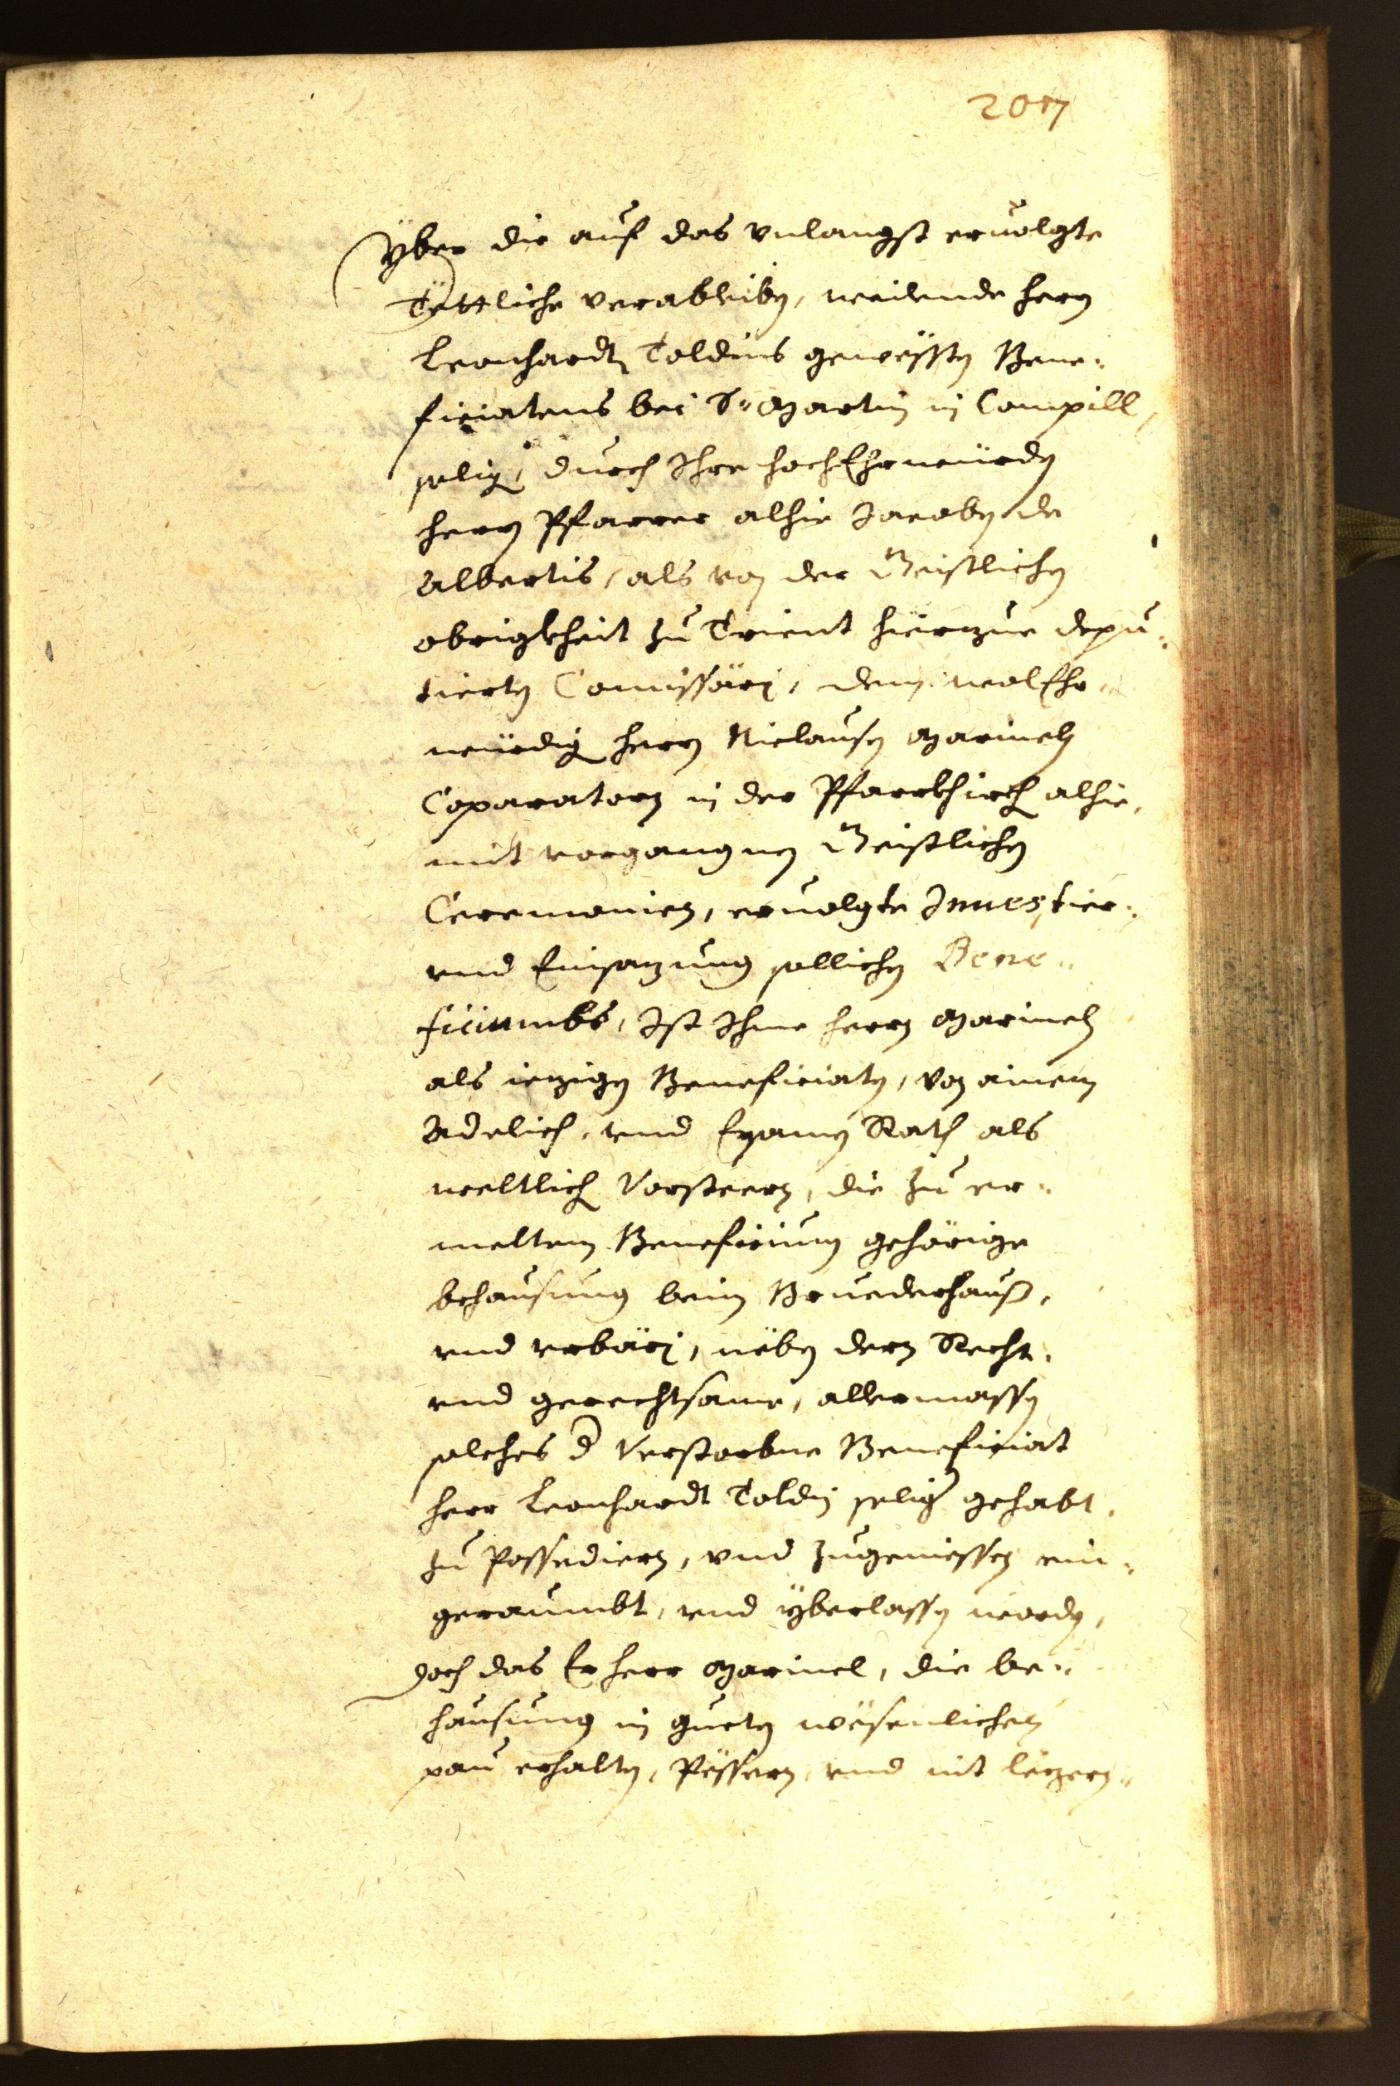 207
Yber die auf das vnlangst ervolgte
Töttliche verableiben, weilende herrn
Leonhardt Toldins gewessten Bene-
ficiatens bei St. Martin in Campill,
selig, durch Ihre hochEhrwürden
herrn Pfarrer alhie Jacoben de
Albertis, als von der Geistlichen
obrigkheit zu Trient hierzue depu-
tierten Comissärj, dem wolEhr-
würdig herrn Niclausen Marineln
Coparatorn in der Pfarrkhirch alhie,
mit vorgangnen Geistlichen
Ceremonien, ervolgte Jnuestier-
vnd Einsazung sollichen Bene-
ficiumbs, Ist Ihme herrn Marineln
als iezigen Beneficiaten, von ainem
Adelich, vnd Ersamen Rath als
weltlich Vorsteern, die zu er-
meltem Beneficium gehörige
behausung beim Bruederhauß,
vnd vrbärj, nëben dern Recht,
vnd gerechtsame, allermassen
solches der Verstorbne Beneficiat
herr Leonhardt Toldin selig gehabt,
zu Possediern, vnd zugeniessen ein-
geraumbt, vnd yberlassen worden,
doch das Er herr Marinel, die be-
hausung in gueten wësenlichen
pau erhalten, Pëssern, vnd nit